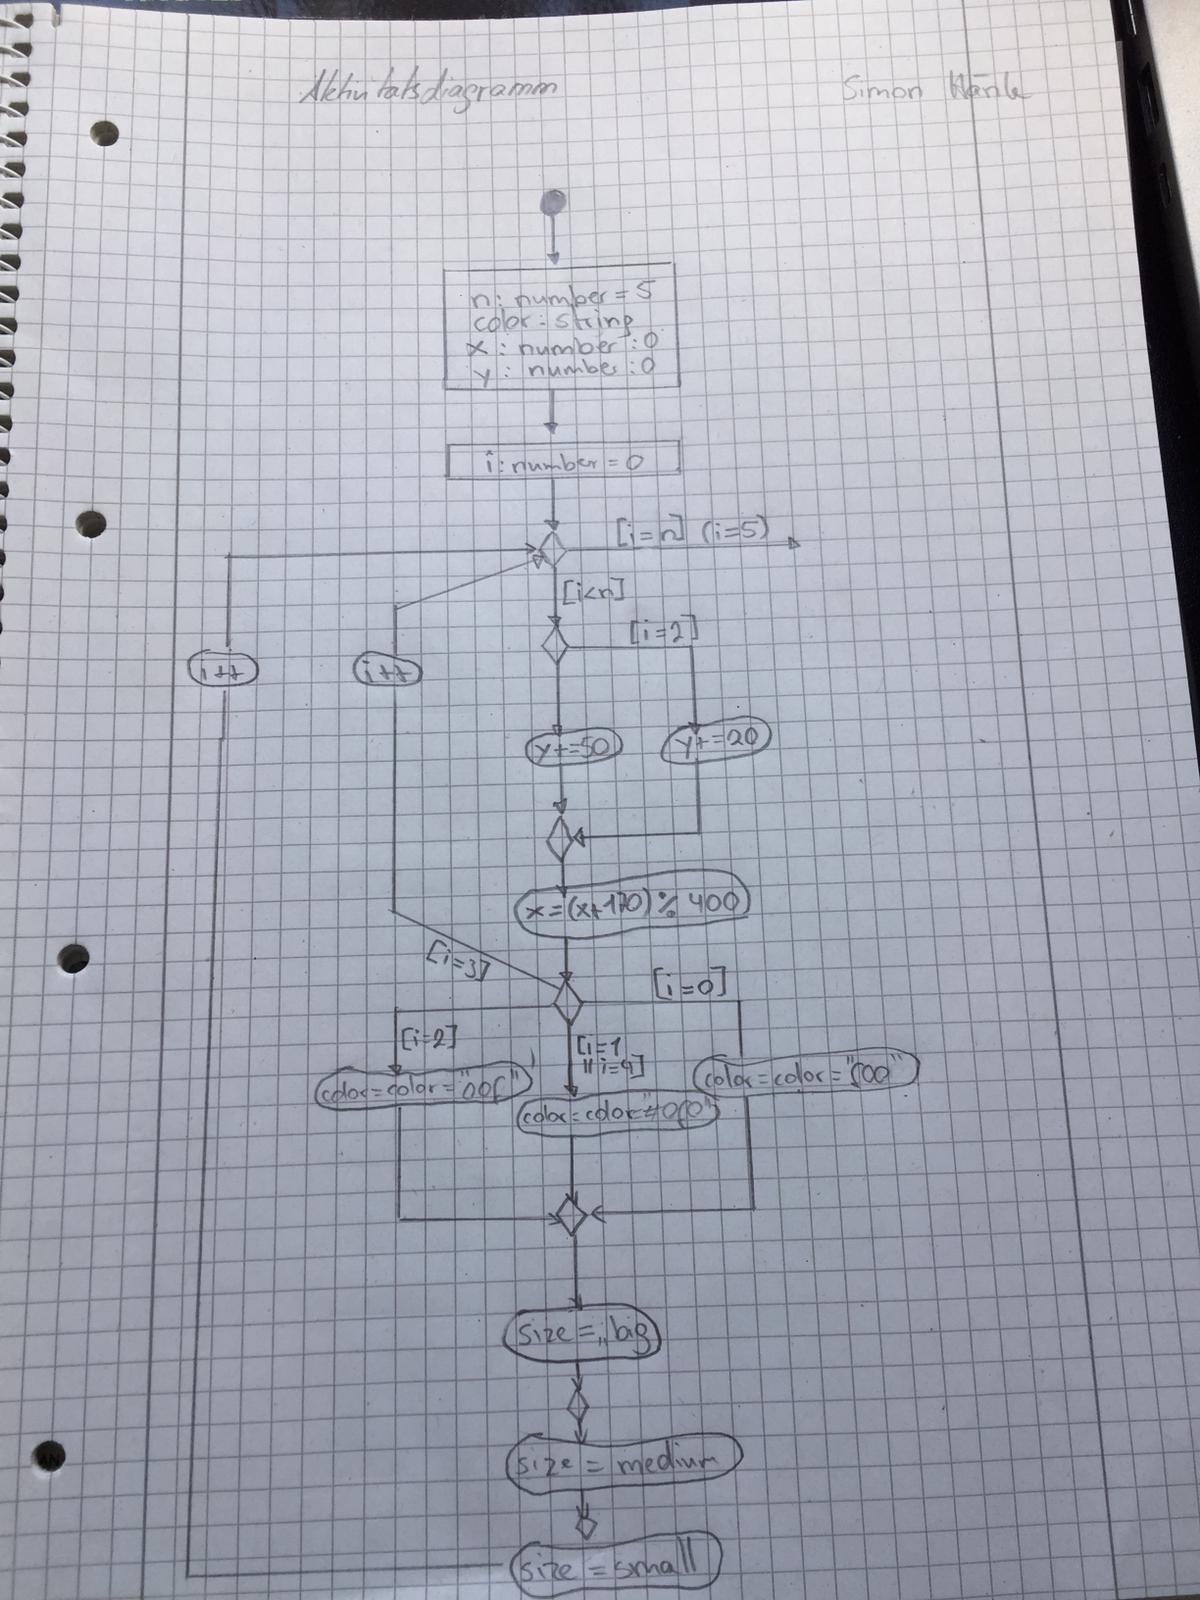 Aktivitätsdiagramm
Simon Härle
n: number = 5
color: string
x: number : 0
y: number : 0
i: number = 0
[i=n] (i=5)
[i<n]
[i=2]
i++
i++
y+=50
y+=20
x=(x+170)%400
[i=3]
[i=0]
[i=2]
[i=1
|| i=4]
color=color="00f"
color=color"#0f0"
color=color="f00"
size=„big
size = medium
size = small